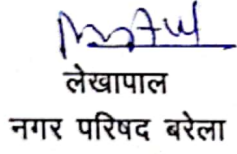 लेखापाल
नगर परिषद बरेला